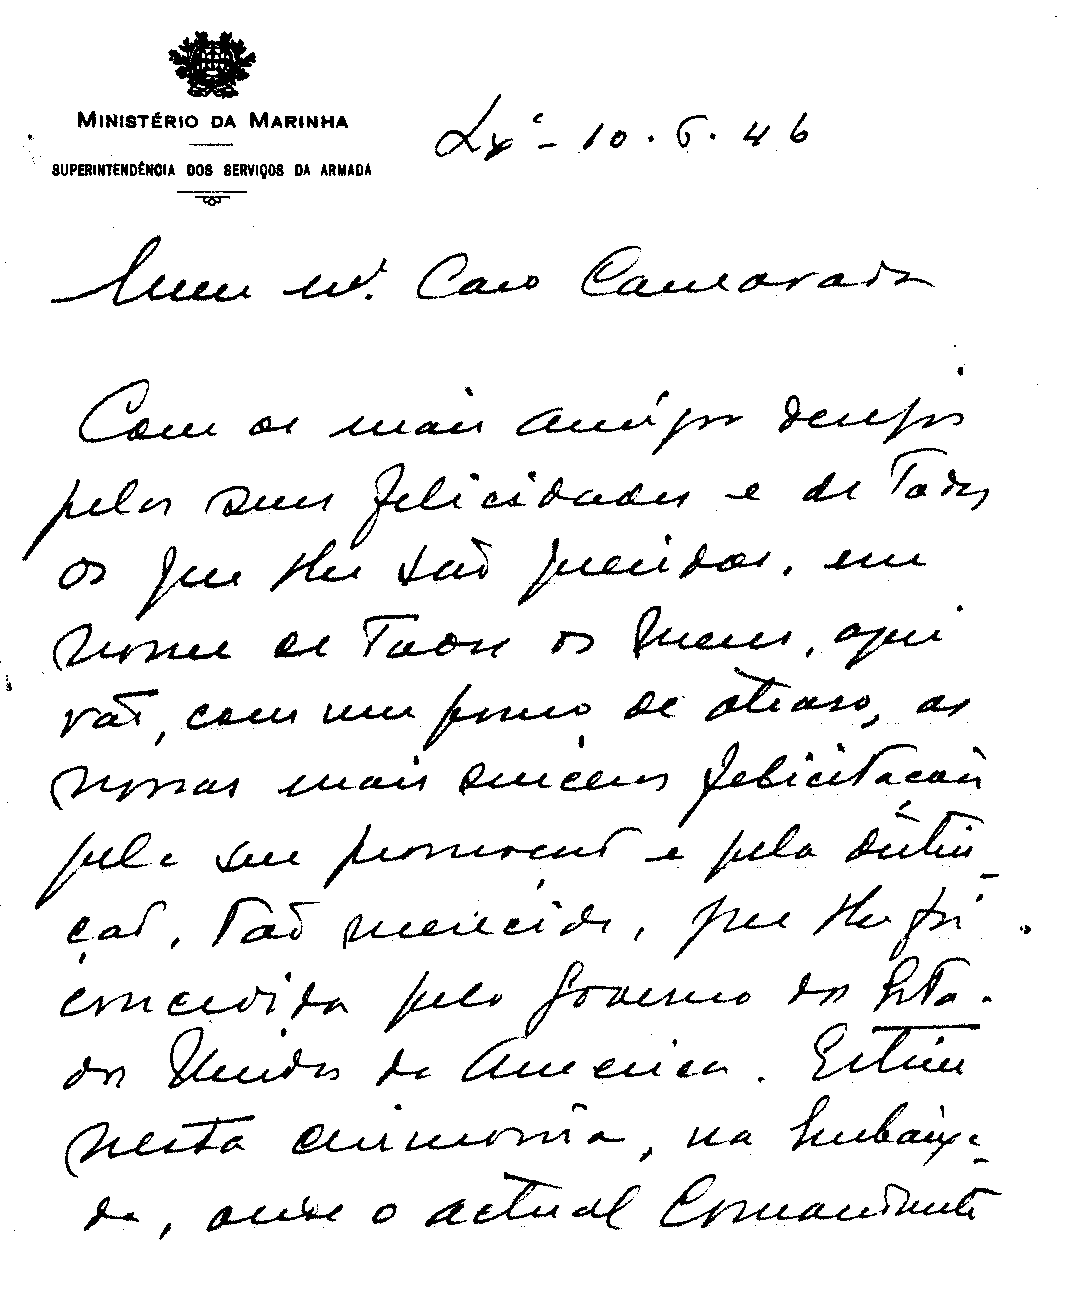 MINISTÉRIO DA MARINHA
SUPERINTENDÊNCIA DOS SERVIÇOS DA ARMADA
Lxª - 10.6.46
Meu m.to Caro Camarada
Com os mais amigos desejos
pelas suas felicidades e de todos
os que lhe são queridos, em
nome de todos os meus, aqui
vão, com um pouco de atraso, as
nossas mais sinceras felicitações
pela sua promoção e pela distin-
ção, tão merecida, que lhe foi
concedida pelo Governo dos Esta-
dos Unidos da America. Estive
nesta cerimonia, na Embaixa-
da, onde o actual Comandante